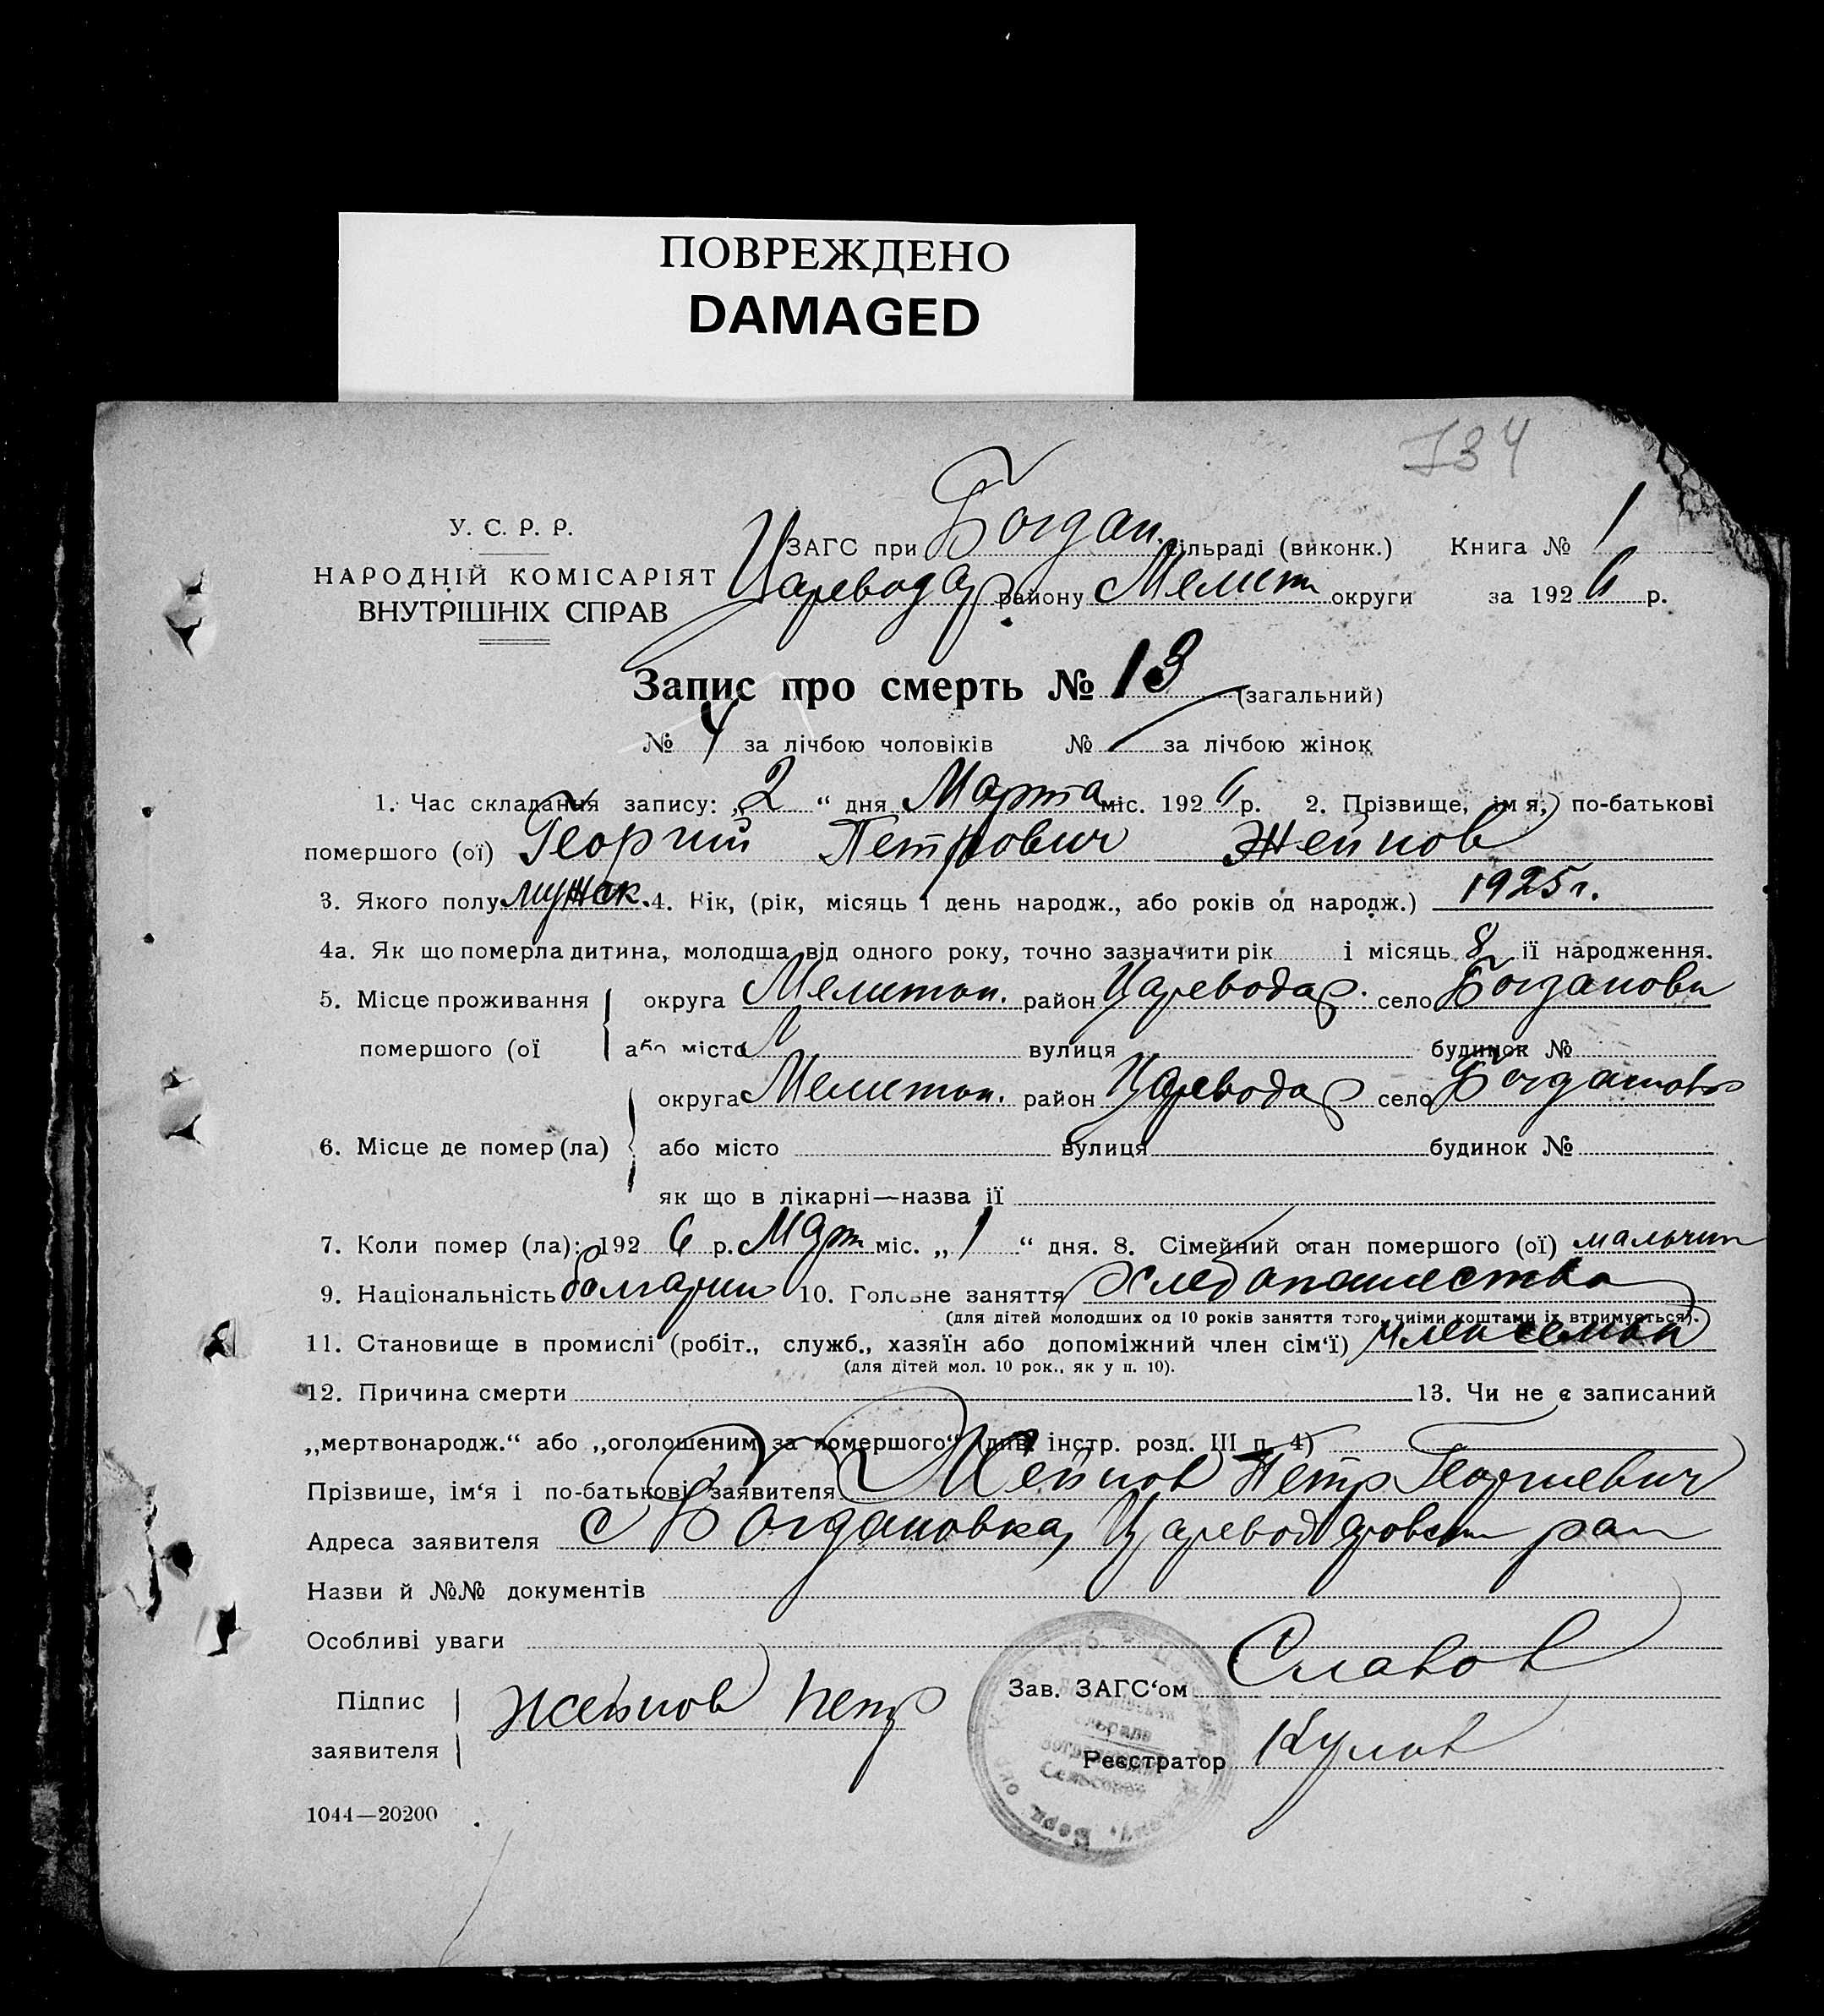 ПОВРЕЖДЕНО
DAMAGED
134
У. С. Р. Р.
НАРОДНІЙ КОМІСАРІЯТ
ВНУТРІШНІХ СПРАВ
ЗАГС при Богдан. сільраді (виконк.) Книга № 1
Царевода району Мелит округи за 1926 р.
Запис про смерть № 13 (загальний)
№ 4 за лічбою чоловіків № за лічбою жінок
1. Час складання запису: „2“ дня Марта міс. 1926 р. 2. Прізвище, ім я, по-батькові
помершого (ої) Георгий Петрович Жейнов
3. Якого полу мужск. 4. Вік, (рік, місяць і день народж., або років од народж.) 1925 г.
4а. Як що померла дитина, молодша від одного року, точно зазначити рік і місяць 8 її народження.
5. Місце проживання округа Мелитоп. район Цареводар. село Богдановка
помершого (ої або місто вулиця будинок №
округа Мелитоп. район Цареводар село Богдановка
6. Місце де помер (ла) або місто вулиця будинок №
як що в лікарні—назва її
7. Коли помер (ла): 1926 р. Март міс. „1“ дня. 8. Сімейний стан помершого (ої) мальчик
9. Національність болгарин 10. Головне заняття Хлебопашество
(для дітей молодших од 10 років заняття того, чиїми коштами їх втримується).
11. Становище в промислі (робіт., служб., хазяїн або допоміжний член сім‘ї) член семьи
(для дітей мол. 10 рок., як у п. 10).
12. Причина смерти 13. Чи не є записаний
„мертвонародж.“ або „оголошеним за помершого“ (див. інстр. розд. III п. 4)
Прізвише, ім‘я і по-батькові заявителя Жейнов Петр Георгиевич
Адреса заявителя с Богдановка, Царевод
Назви й №№ документів
Особливі уваги
Підпис Жейнов Петр Зав. ЗАГС‘ом Славов
заявителя Реєстратор Кулов
1044—20200